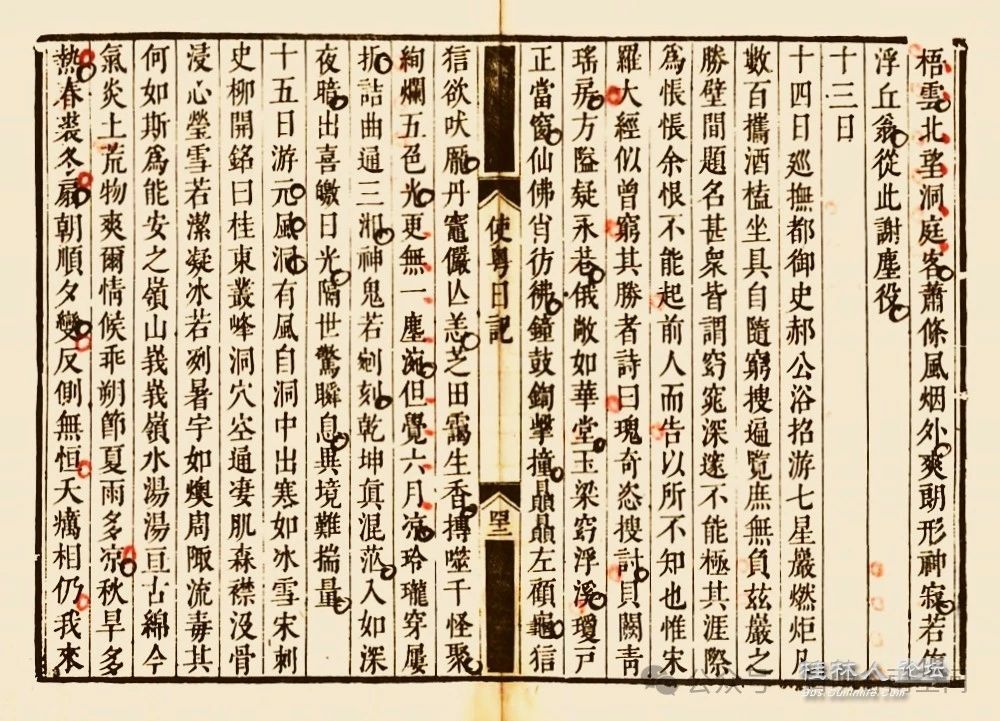 梧雲北望洞庭客蕭條風烟外爽朗形神寂若值
浮丘翁從此謝塵役
十三日
十四日巡撫都御史郝公浴招游七星巖燃炬凡
數百攜酒榼坐具自隨窮搜遍覽庶無負茲巖之
勝壁間題名甚衆皆謂窈窕深邃不能極其涯際
爲悵悵余恨不能起前人而告以所不知也惟宋
羅大經似曾窮其勝者詩曰瑰奇恣搜討貝闕靑
瑤房方隘疑永巷俄敞如華堂玉梁窈浮溪瓊戸
正當窗仙佛肖彷彿鐘鼓鏗擊撞贔贔左顧龜狺
使粵日記
四二
狺欲吠厖丹竈儼亾恙芝田靄生香摶噬千怪聚
絢爛五色光更無一塵涴但覺六月凉玲瓏穿屢
折詰曲通三湘神鬼若剜刻乾坤眞混茫入如深
夜暗出喜皦日光隔世驚瞬息異境難揣量
十五日游元風洞有風自洞中出寒如冰雪宋刺
史柳開銘曰桂東叢峰洞穴空通凄肌森襟沒骨
浸心瑩雪若潔凝冰若冽暑宇如燠周陬流毒其
何如斯爲能安之嶺山峩峩嶺水湯湯亘古綿今
氣炎上荒物爽爾情候乖朔節夏雨多凉秋旱多
熱春裘冬扇朝順夕變反側無恒夭癘相仍我來
桂林人论坛
公众号